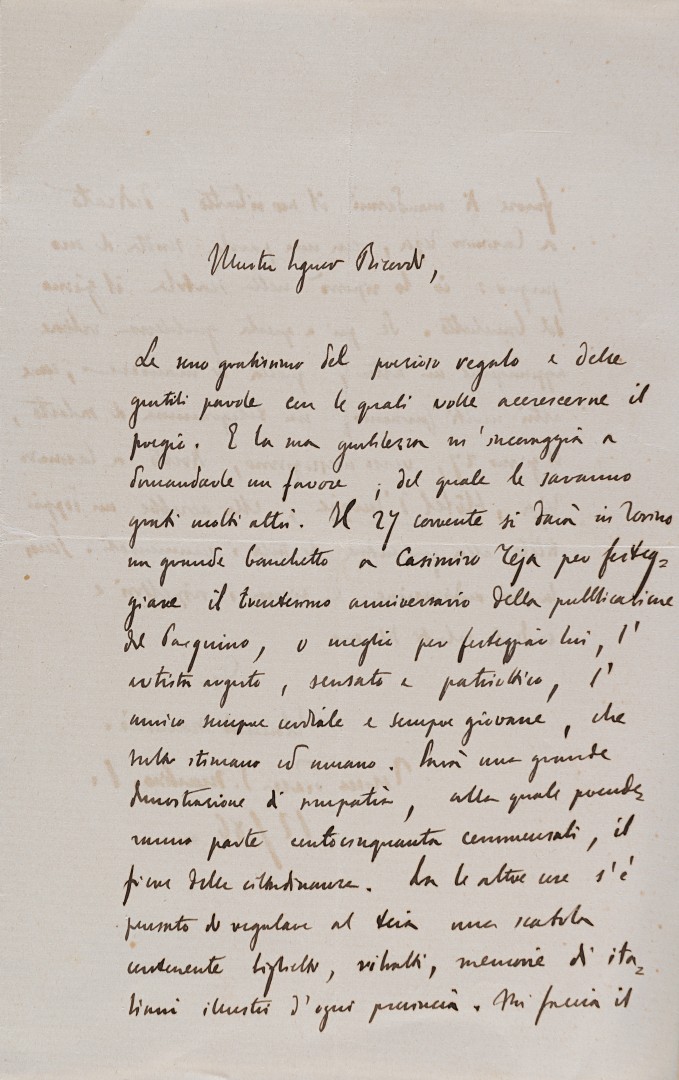 Illustre Signor Ricordi,
Le sono gratissimo del prezioso regalo e delle
gentili parole con le quali volle accrescerne il
pregio. E la sua gentilezza m'incoraggia a
domandarle un favore, del quale le saranno
grati molti altri. Il 27 corrente si darà in Torino
un grande banchetto a Casimiro Teja per festeg=
giare il trentesimo anniversario della pubblicazione
del Pasquino, o meglio per festeggiar lui, l'
artista arguto, sensato e patriottico, l'
amico sempre cordiale e sempre giovane, che
tutti stimano ed amano. Sarà una grande
dimostrazione di simpatia, alla quale prende=
ranno parte centocinquanta commensali, il
fiore della cittadinanza. Fra le altre cose s'è
pensato di regalare al Teja una scatola
contenente biglietti, ritratti, memorie di ita=
liani illustri d'ogni provincia. Mi faccia il